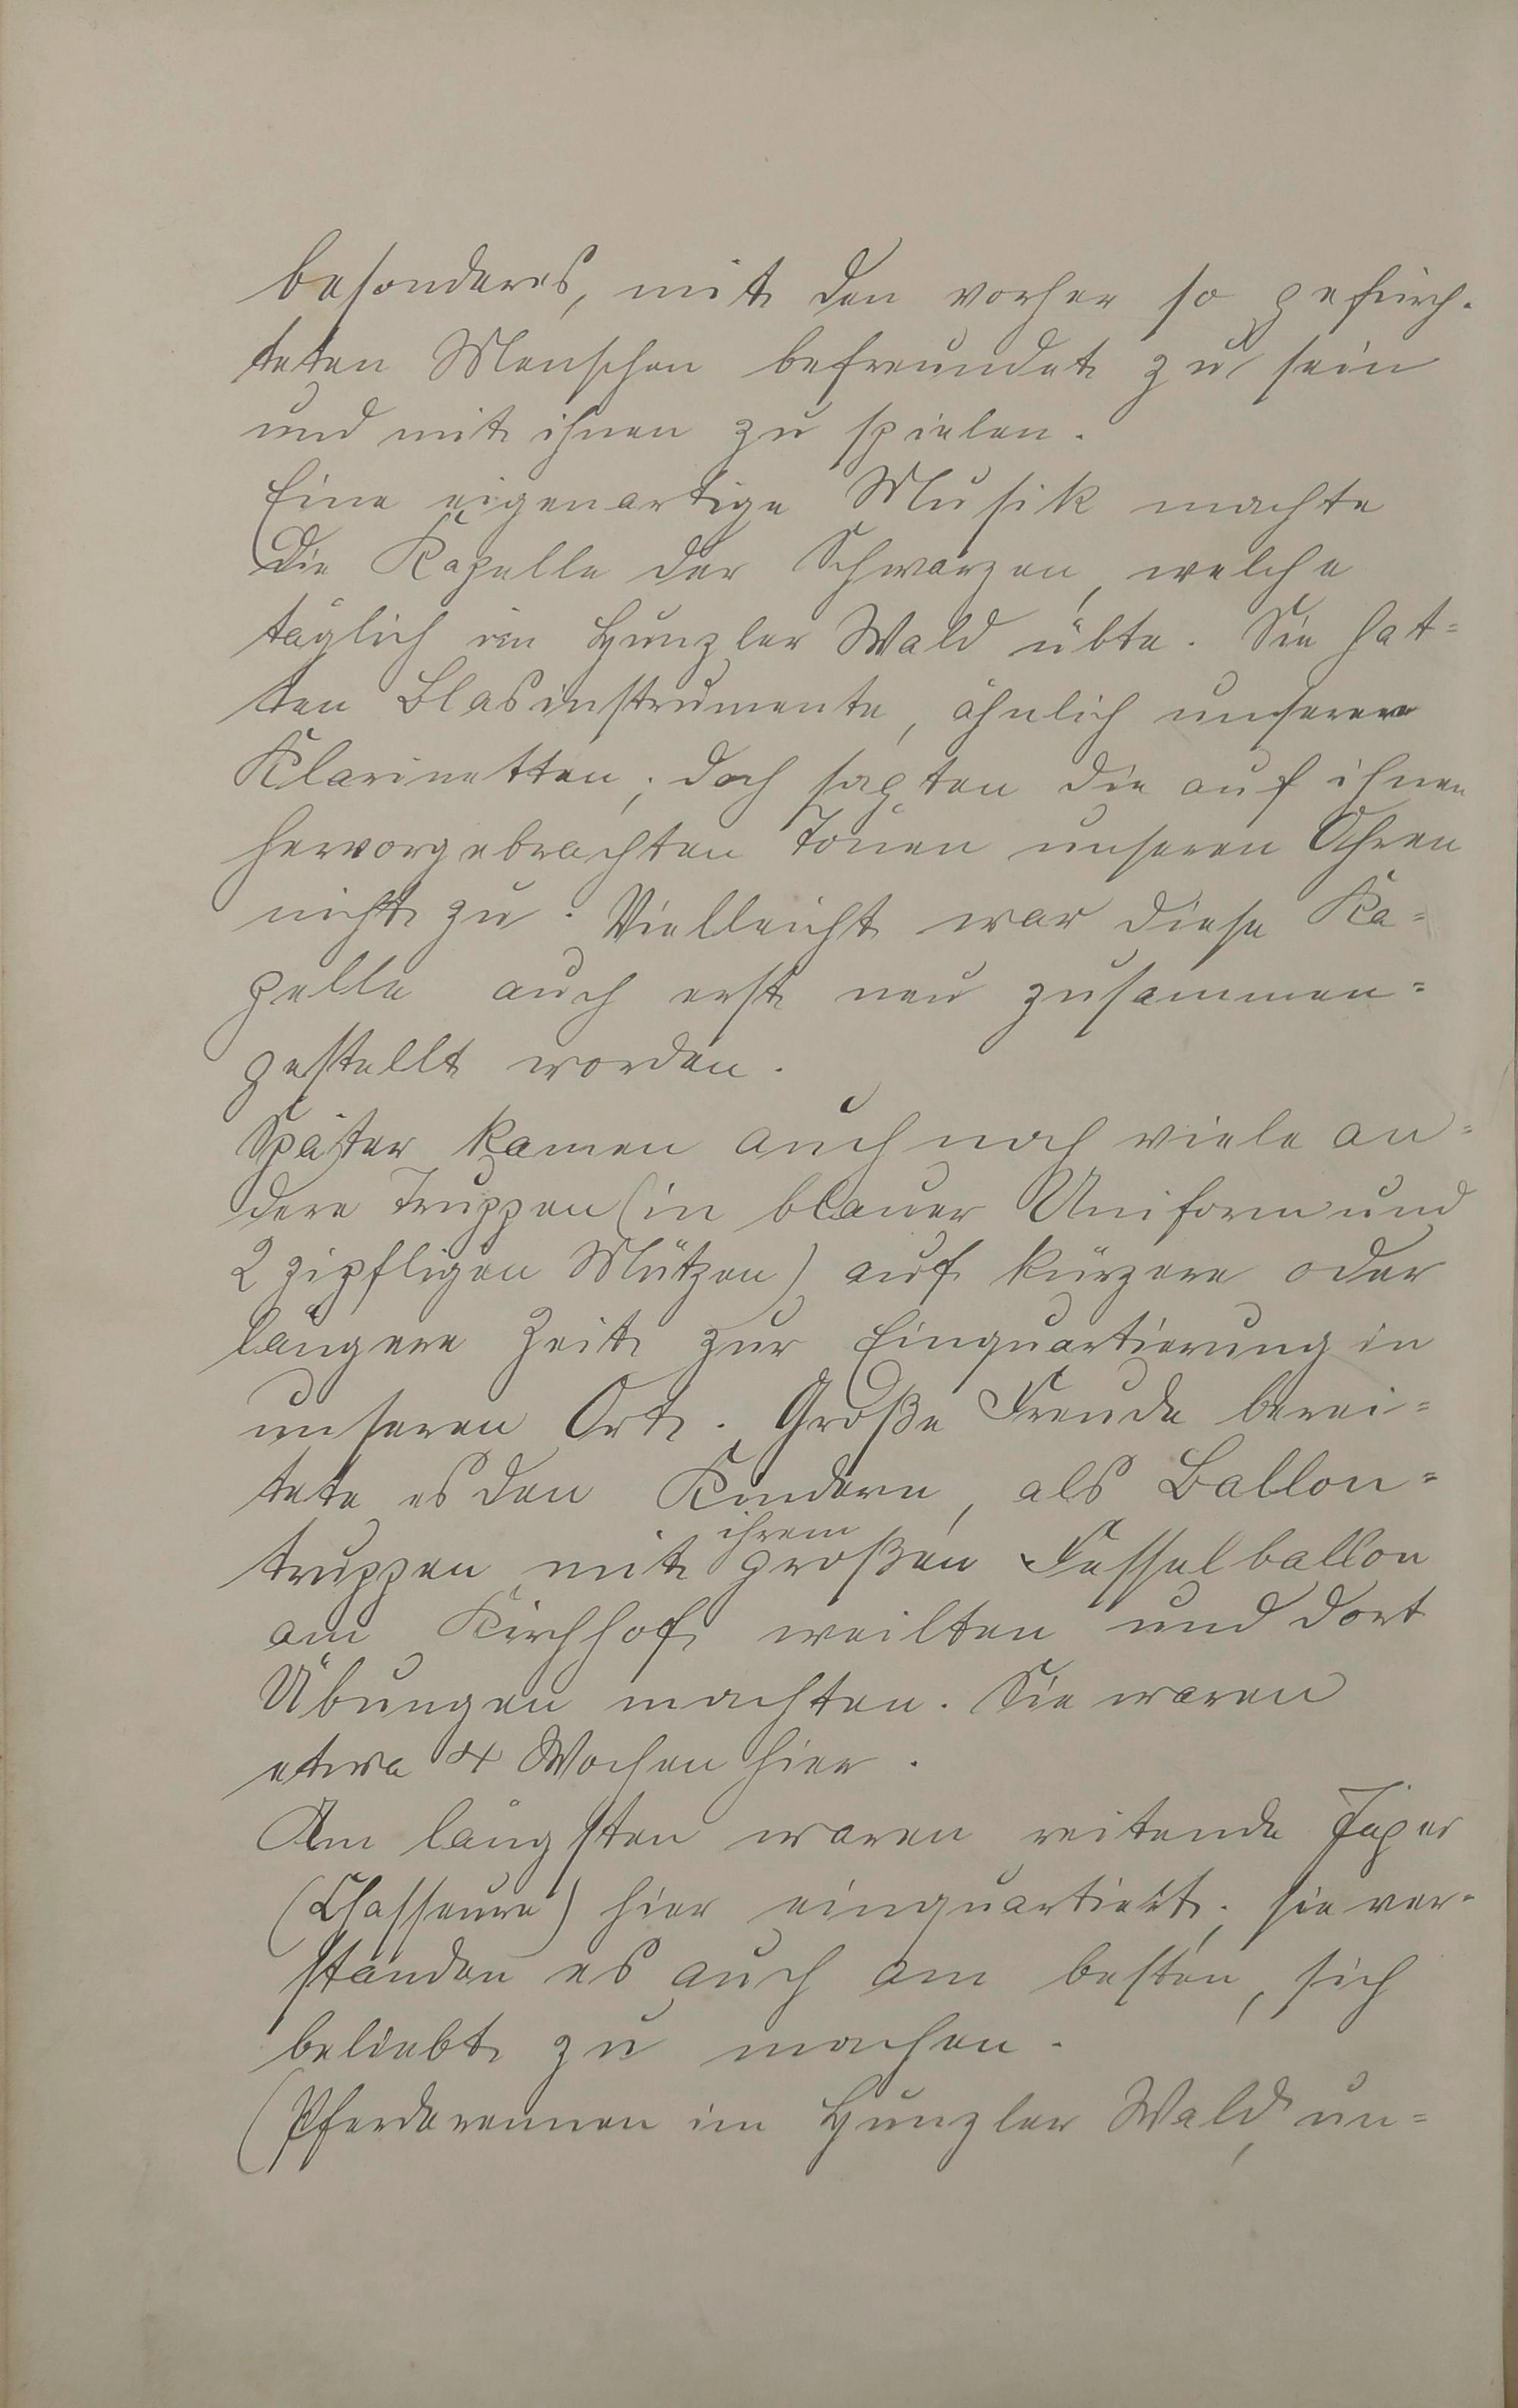 besonderes, mit den vorher so gefürch-
teten Menschen befreundet zu sein
und mit ihnen zu spielen.
Eine eigenartige Musik machte
die Kapelle der Schwarzen, welche
täglich im Hunzler Wald übte. Sie hat=
ten Blasinstrumente, ähnlich unseren
Klarinetten; doch sagten die auf ihnen
hervorgebrachten Tönen unseren Ohren
nicht zu. Vielleicht war diese Ka=
pelle auch erst neu zusammen=
gestellt worden.
Später kamen auch noch viele an=
dere Truppen (in blauer Uniform und
2 zipfligen Mützen) auf kürzere oder
längere Zeit zur Einquartierung in
unseren Ort. Große Freude berei=
tete es den Kindern, als Ballon=
truppen mit ihrem großen Fesselballon
am Kirchhof weilten und dort
Übungen machten. Sie waren
etwa 4 Wochen hier.
Am längsten waren reitende Jäger
(Chasseure) hier einquartiert; sie ver-
standen es auch am besten, sich
beliebt zu machen.
(Pferderennen im Hunzler Wald, un=